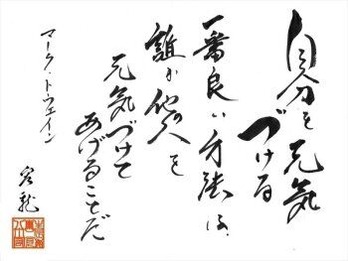 自分を元気
づける
一番良い方法は、
誰か他の人を
元気づけて
あげることだ
マーク・トウェイン